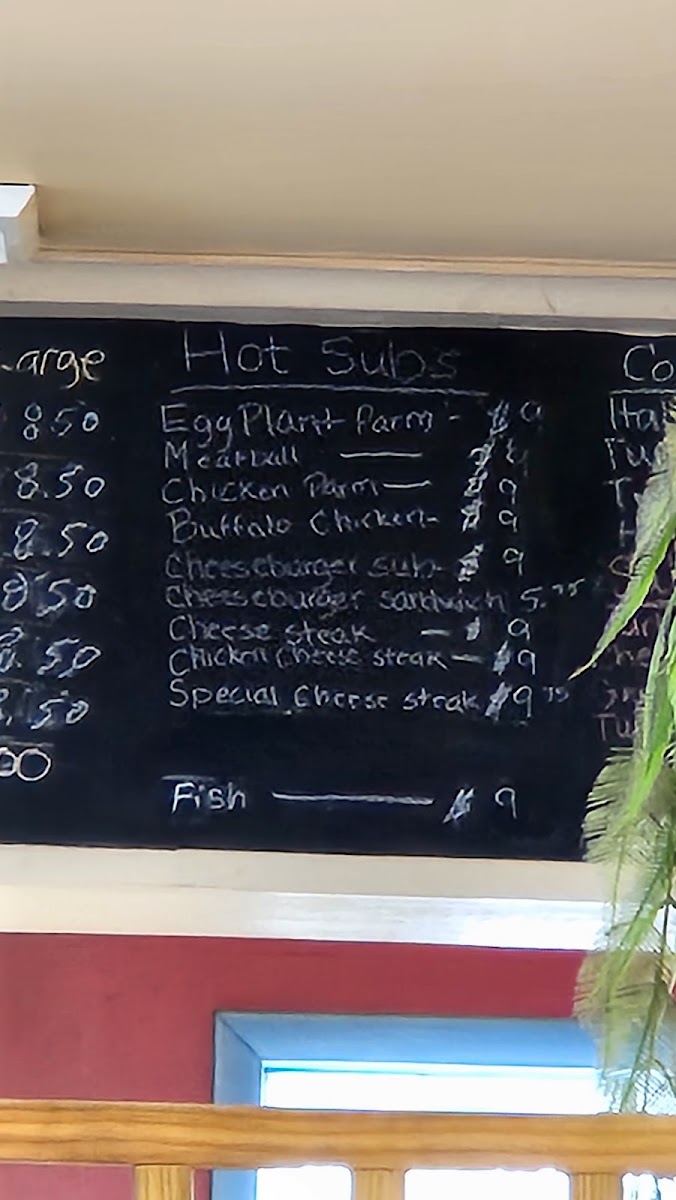 Large
850
8.50
8.50
8.50
8.50
8.50
00
Hot Subs
EggPlant Parm - $ 9
Meatball —
Chicken Parm — $ 9
Buffalo Chicken - $ 9
Cheeseburger sub - $ 9
Cheeseburger sandwich 5.75
Cheese steak — $ 9
Chicken cheese steak — $ 9
Special cheese steak $ 9 75
Fish — $ 9
Co
Ita
Tu